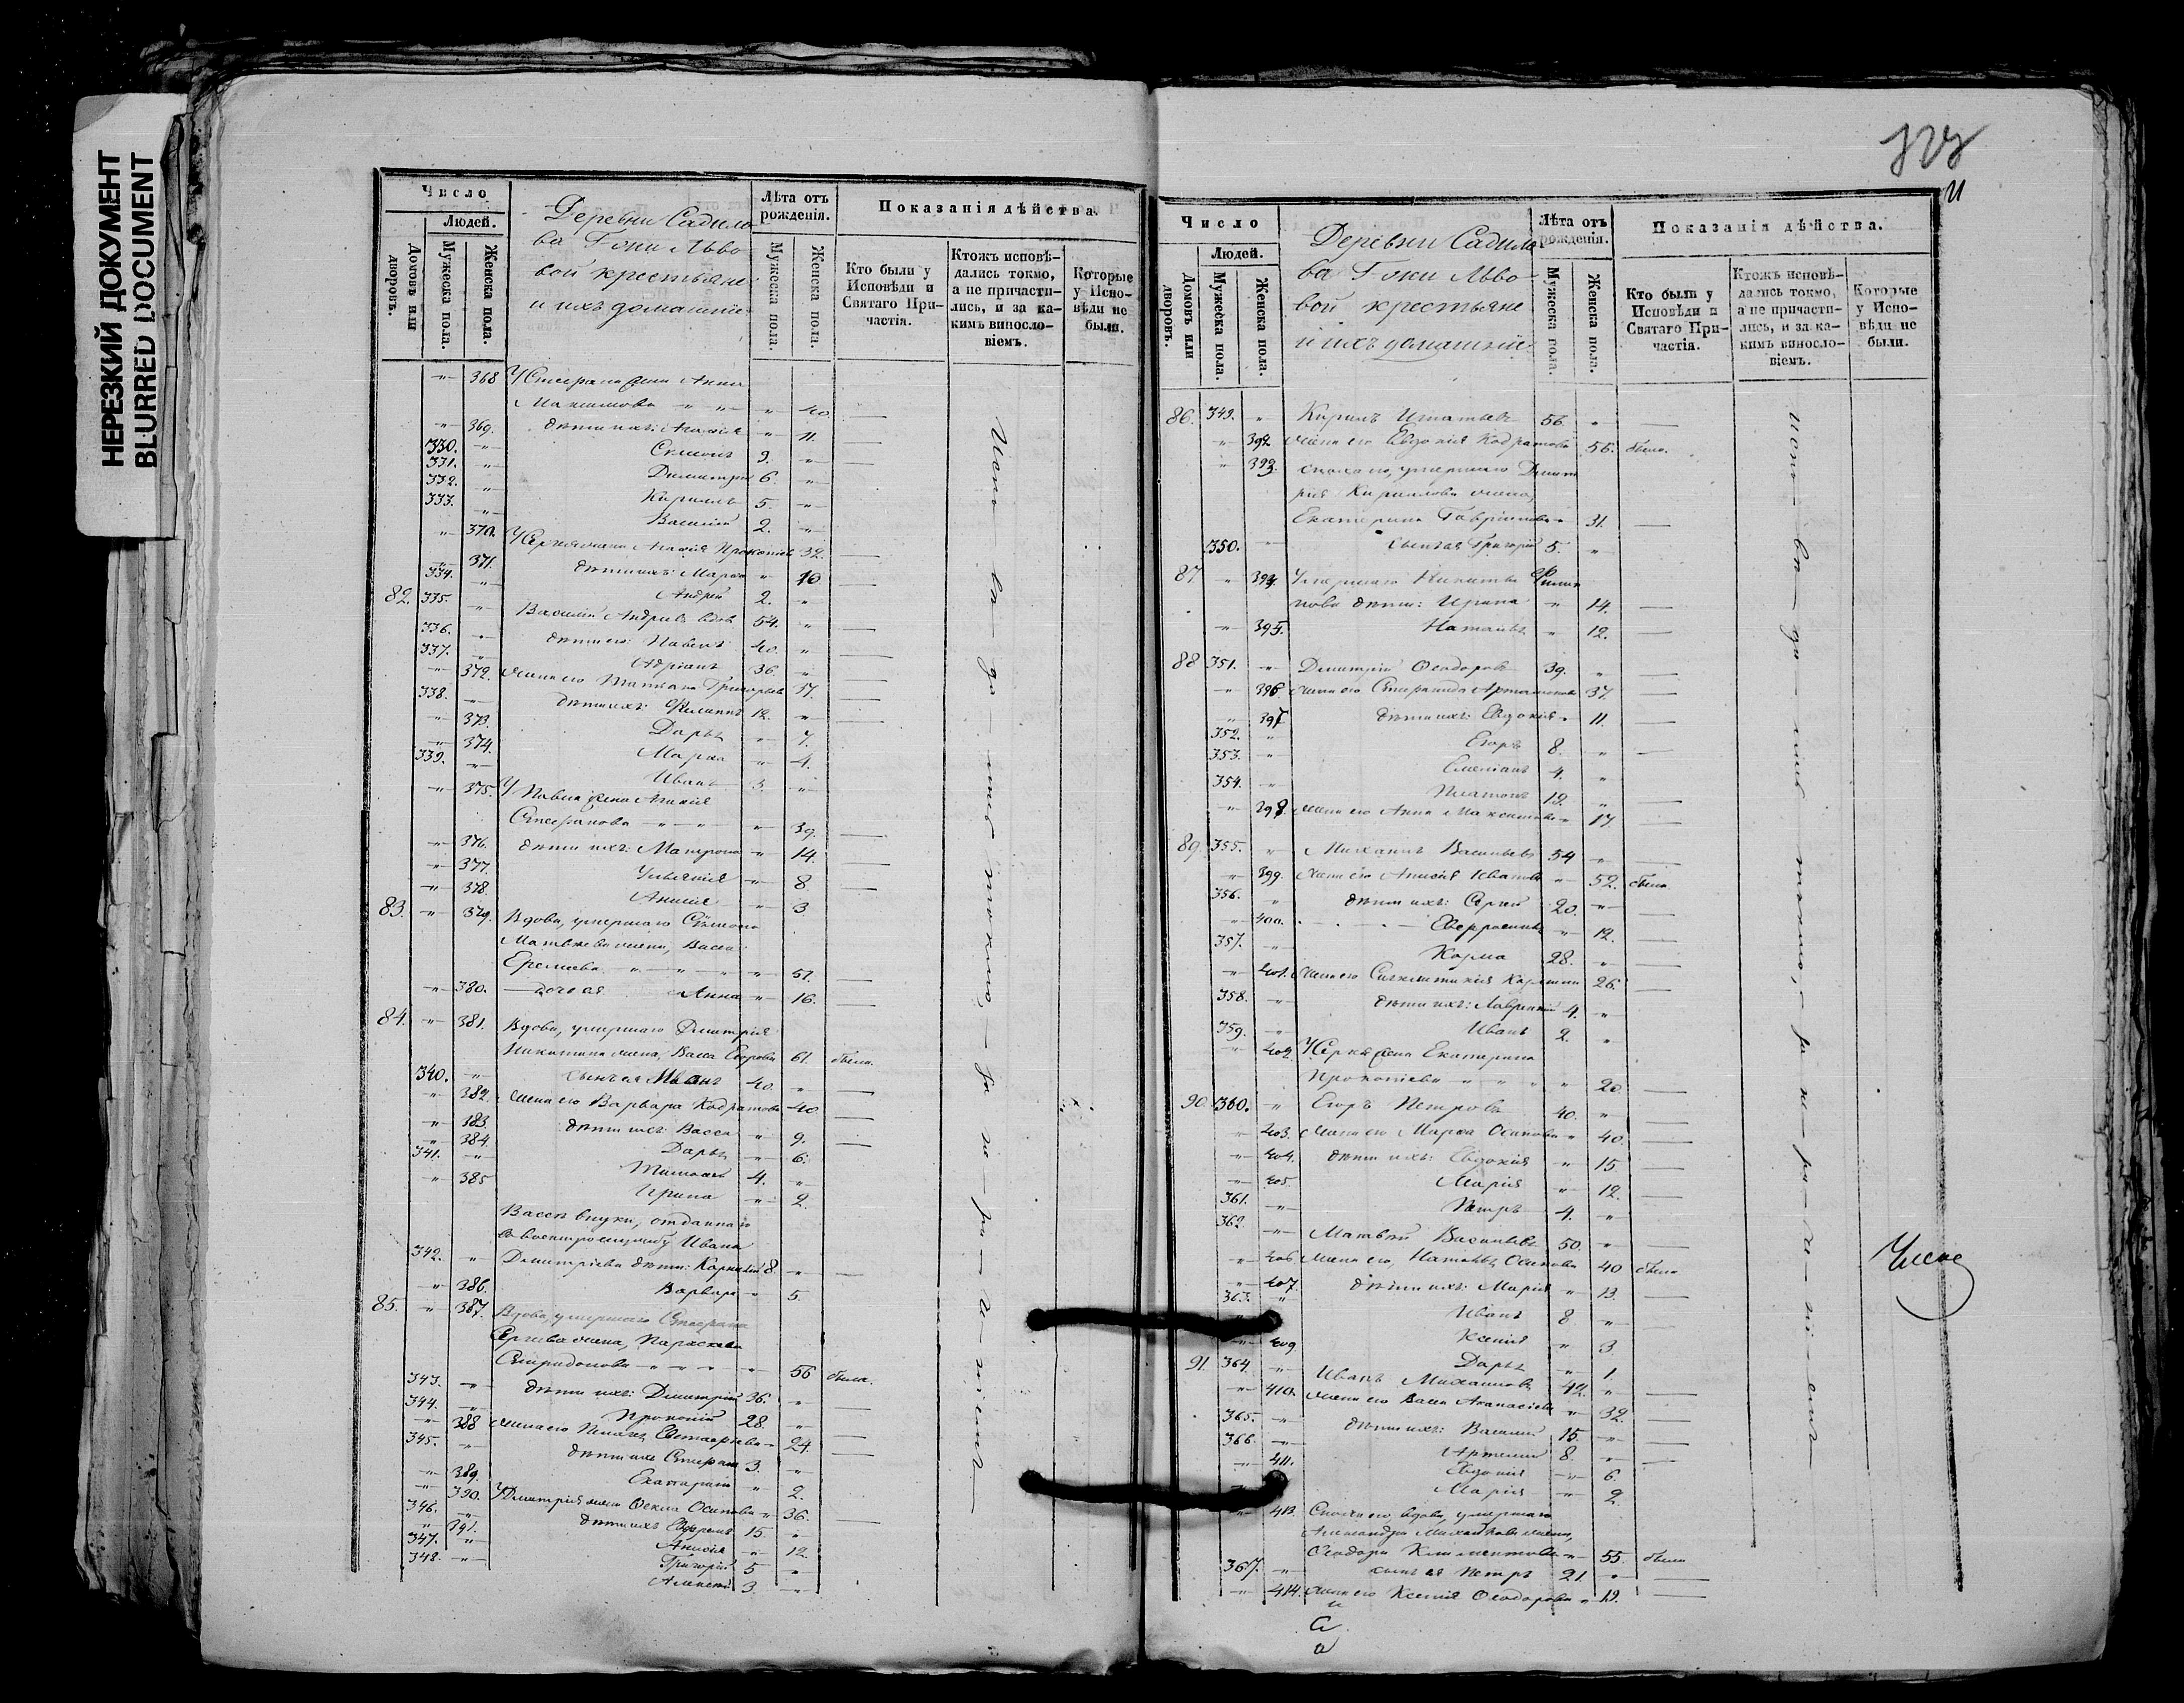 НЕРЕЗКИЙ ДОКУМЕНТ
BLURRED DOCUMENT
Число
Людей.
Домовъ или дворовъ.
Мужеска пола.
Женска пола.
Деревни Садило
ва Г-жи Льво
вой крестьяне
и ихъ домашніе
Лѣта отъ рожденія.
Мужеска пола.
Женска пола.
Показанія дѣйства.
Кто были у Исповѣди и Святаго Причастія.
Ктожъ исповѣдались токмо, а не причастились, и за какимъ винословіемъ.
Которые у Исповѣди не были.
368 У Стефана жена Анна
Максимова 40
369. дѣти ихъ: 11.
330. Симонъ 9.
331. Димитрій 6.
332. Кирилъ 5.
333. Василій 2.
370. Прокопіева 32.
371. дѣти ихъ: Марѳа 10
334. Андрей 2.
82. 335. Василій Андреевъ вдовъ 54.
336. дѣти его: Павелъ 40.
337. Адріанъ 36.
372. жена его Татіана Григорьева 37.
338. дѣти ихъ: Филиппъ 12.
373. Дарья 7.
374. Марѳа 4.
339. Иванъ 3.
375. У Павла жена
Стефанова 39.
376. дѣти ихъ: Матрона 14.
377. Ульянія 8
378. Анисія 3
83. 379. Вдова, умершаго Симона
Матвѣева жена, Васса
Еремѣева 51.
380. дочь ея Анна 16.
84. 381. Вдова, умершаго Дмитрія
Никитина жена, Васса Егорова 61. была.
340. сынъ ея Иванъ 40.
382. жена его Варвара Кодратова 40.
383. дѣти ихъ: Васса 9.
384. Дарья 6.
341. Тимоѳей 4.
385 Ирина 2.
Вассы внуки, отданнаго
въ военную службу Ивана
342. Дмитріева дѣти: Корнилій 8.
386. Варвара 5.
85. 387. Вдова, умершаго Стефана
Сергѣева жена, Параскева
Спиридонова 56 была.
343. дѣти ихъ: Димитрій 36.
344. Прокопій 28.
388 жена его Евстафіева 24.
345. дѣти ихъ Стефанъ 3.
389. Екатерина 2.
390. У Дмитрія жена Ѳекла Осипова 36.
346. дѣти ихъ Ефремъ 15.
391. Анисія 12.
347. Григорій 5
348. Алексѣй 3.
Испо-вѣ-да-лись токмо, за не-ра-дѣ-ніемъ
Число
Людей.
Домовъ или дворовъ.
Мужеска пола.
Женска пола.
Деревни Садило
ва Г-жи Льво
вой крестьяне
и ихъ домашніе
Лѣта отъ рожденія.
Мужеска пола.
Женска пола.
Показанія дѣйства.
Кто были у Исповѣди и Святаго Причастія.
Ктожъ исповѣдались токмо, а не причастились, и за какимъ винословіемъ.
Которые у Исповѣди не были.
86. 349. Кирилъ Игнатьевъ 56.
392 жена его Евдокія Кодратова 56. была.
393. сноха его, умершаго Димит
рія Кирилова жена,
Екатерина Гаврилова 31.
350. сынъ ея Григорій 5.
87 394. Умершаго Никиты Филип
пова дѣти: Ирина 14.
395. Наталья 12.
88 351. Димитрій Ѳеодоровъ 39.
396. жена его Степанида Артамонова 37.
397 дѣти ихъ: Евдокія 11.
352. Егоръ 8.
353. Емеліанъ 4.
354. Платонъ 19.
398. жена его Анна Максимова 17.
89. 355. Михаилъ Васильевъ 54
399. жена его Анисія Иванова 52. была
356. дѣти ихъ: Сергѣй 20.
400. Евфросинья 12.
357. Карпъ 28.
401. жена его Синклитикія 26.
358. дѣти ихъ: Лаврентій 4.
359. Иванъ 2.
402. жена Екатерина
Прокопіева 20.
90. 360. Егоръ Петровъ 40.
403. жена его Марѳа Осипова 40.
404. дѣти ихъ: Евдокія 15.
405. Марія 12.
361. Петръ 4.
362. Матвѣй Васильевъ 50.
406 жена его, Наталья Осипова 40 была
407. дѣти ихъ: Марія 13.
363. Иванъ 8
Ксенія 3
409 Дарья 1.
91. 364. Иванъ Михаиловъ 42.
410. жена его Васса Аѳанасіева 32.
365. дѣти ихъ: Василій 15.
366. Артемій 8.
411. Евдокія 6.
Марія 2.
413. Сноха его, вдова, умершаго
Александра Михайлова жена,
Ѳеодора Климентова 55. была
367. сынъ ея Петръ 21.
414. жена его Ксенія Ѳеодорова 19.
испо-вѣ-да-лись токмо, за не-ра-дѣ-ніемъ